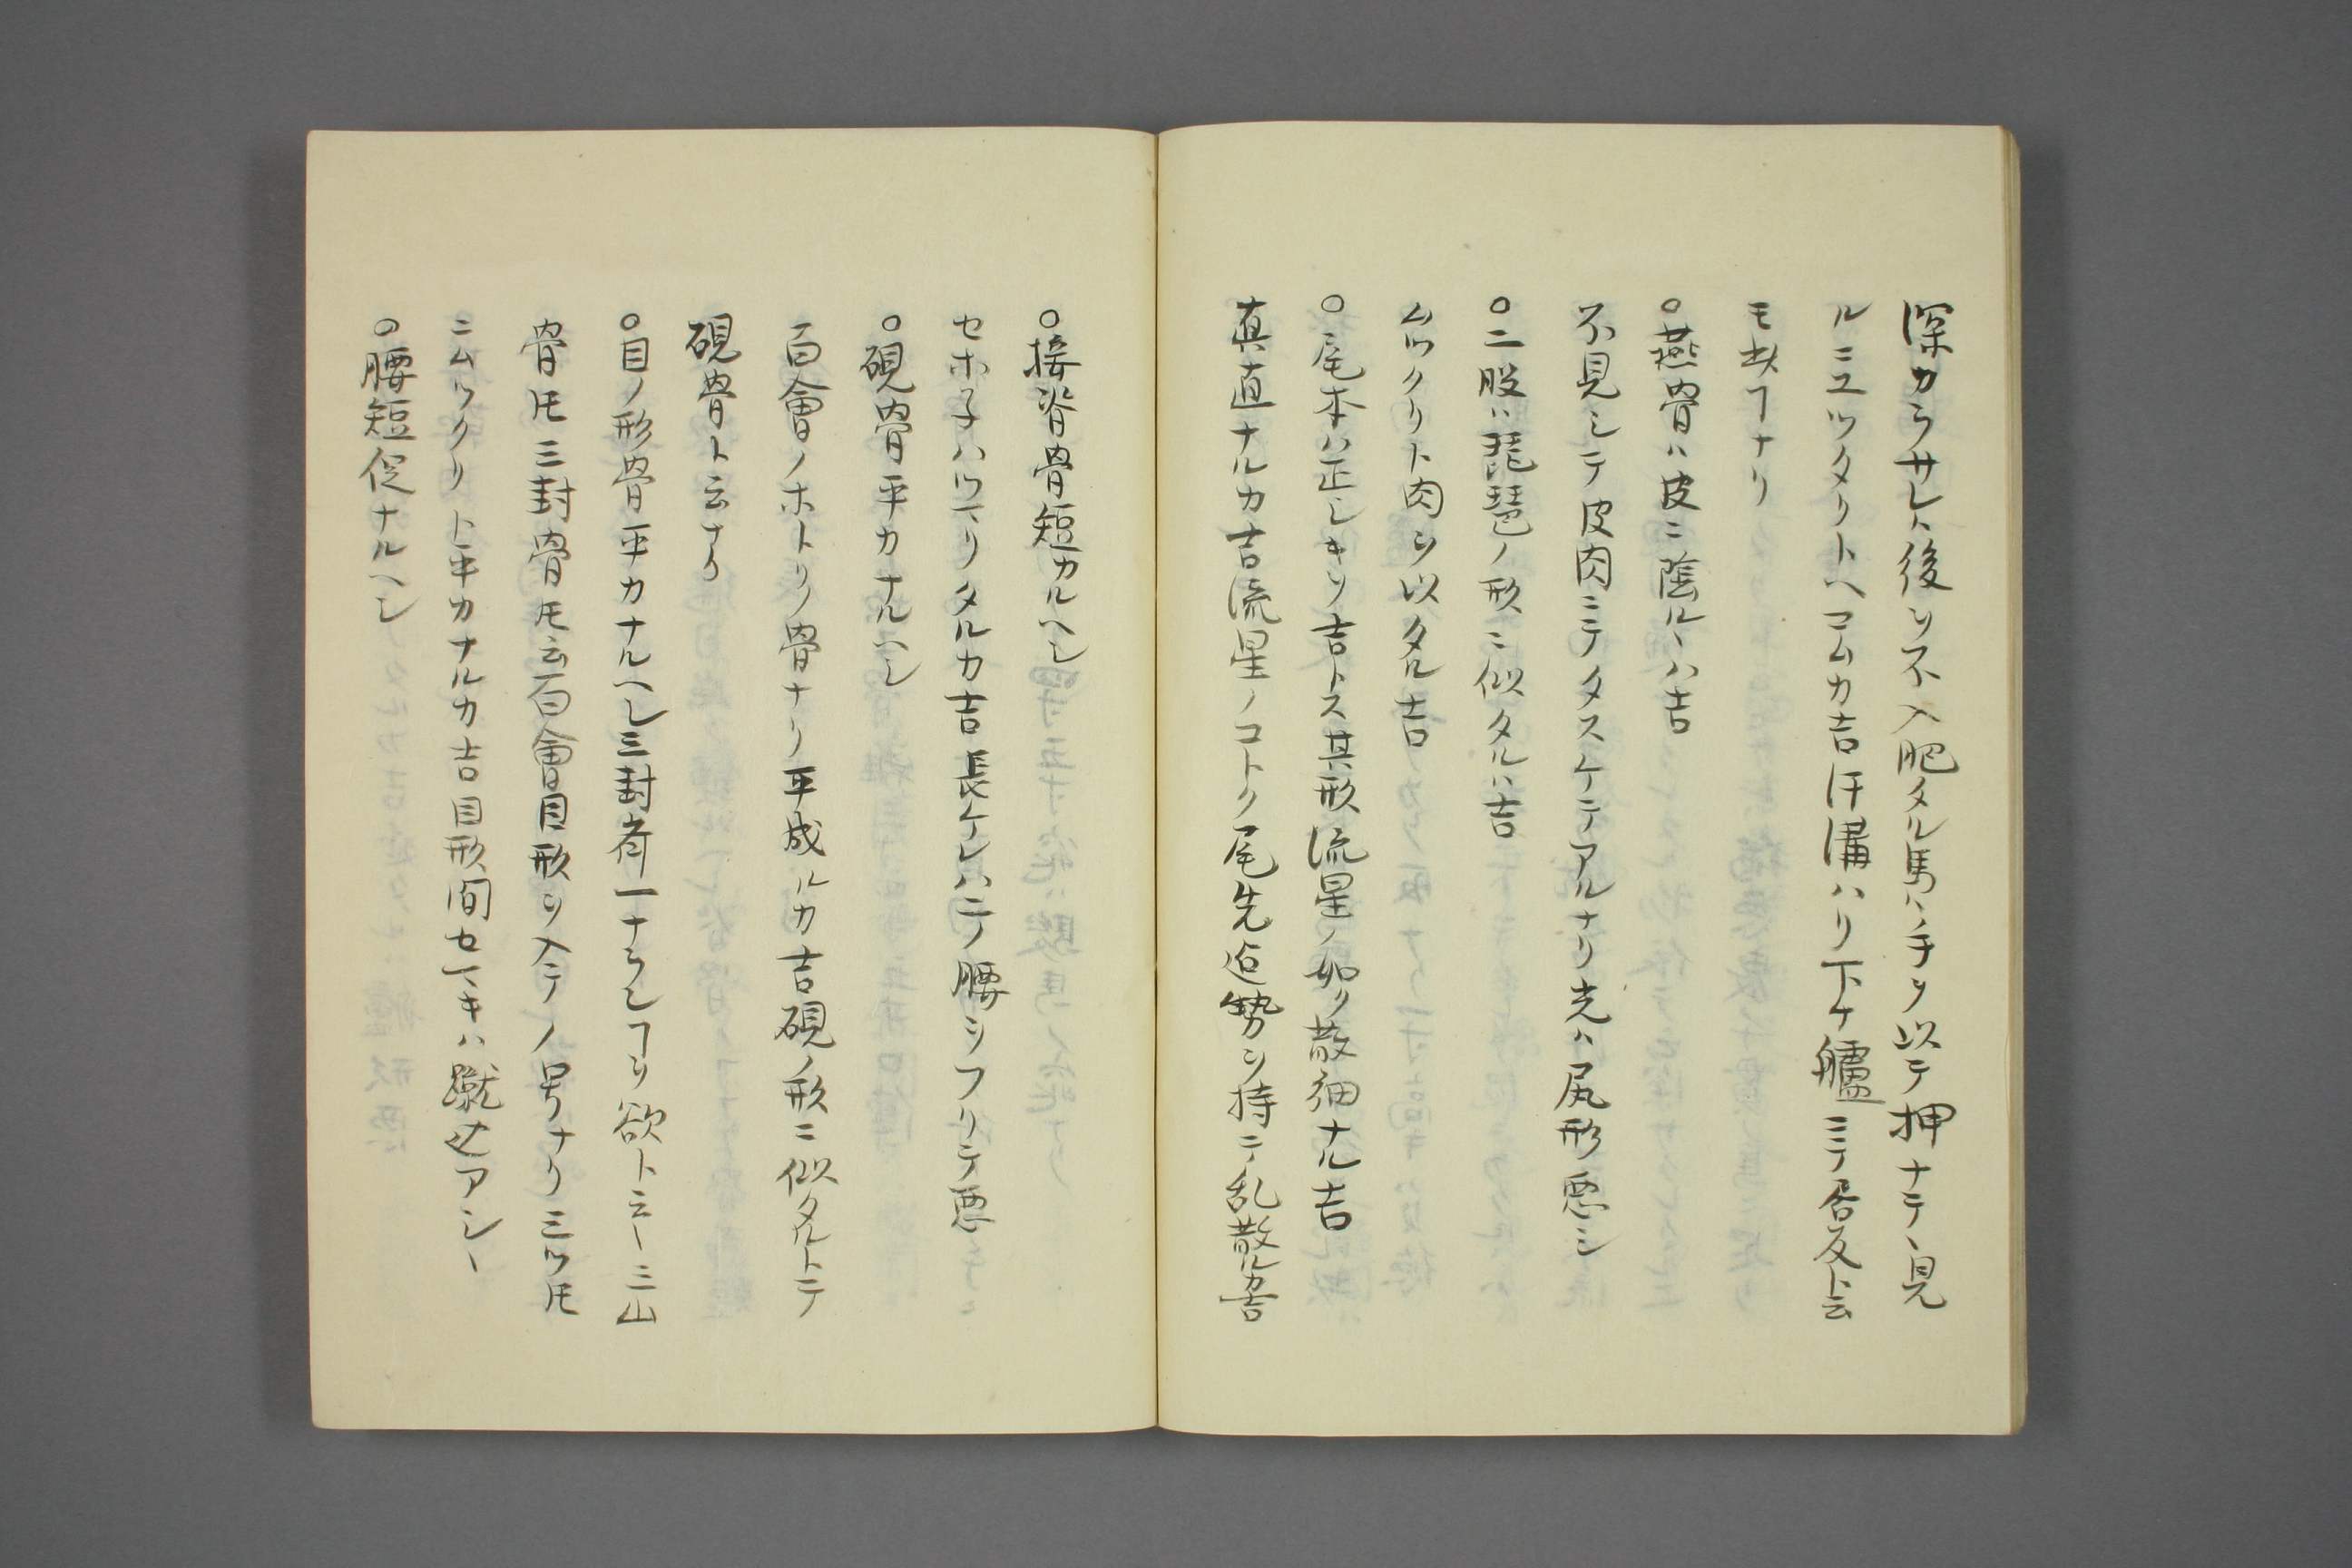 深カラサレハ後ヲ不入肥タル馬ハ手ヲ以テ押ナテヽ見
ルニユツタリトヘコムカ吉汗溝ハリ下ケ艫ミテ居反ト云
モ此ヿナリ
○燕骨ハ皮ニ蔭ルヽハ吉
不見シテ皮肉ニテタスケテアルナリ光ハ尻形悪シ
○二股ハ琵琶ノ形ニ似タルハ吉
ムツクリト肉ヲ以タル吉
○尾本ハ正シキヲ吉トス其形流星ノ如ク散細ナル吉
真直ナルカ吉流星ノコトク尾先迠勢ヲ持テ乱散ルカ吉
○接脊骨短カルヘシ
セホ子ハツマリタルカ吉長ケレハ二ノ腰ヲフリテ悪
○硯骨平カナルヘシ
百會ノホトリノ骨ナリ平成ルカ吉硯ノ形ニ似タルトテ
硯骨ト云ナリ
○目ノ形骨平カナルヘシ三封者一ナランヿヲ欲ト云ー三山
骨𪜈三封骨𪜈云百會目形ヲ入テノ号ナリ三ツ𪜈
ニムツクリト平カナルカ吉目形間セマキハ蹴セアシヽ
○腰短促ナルヘシ